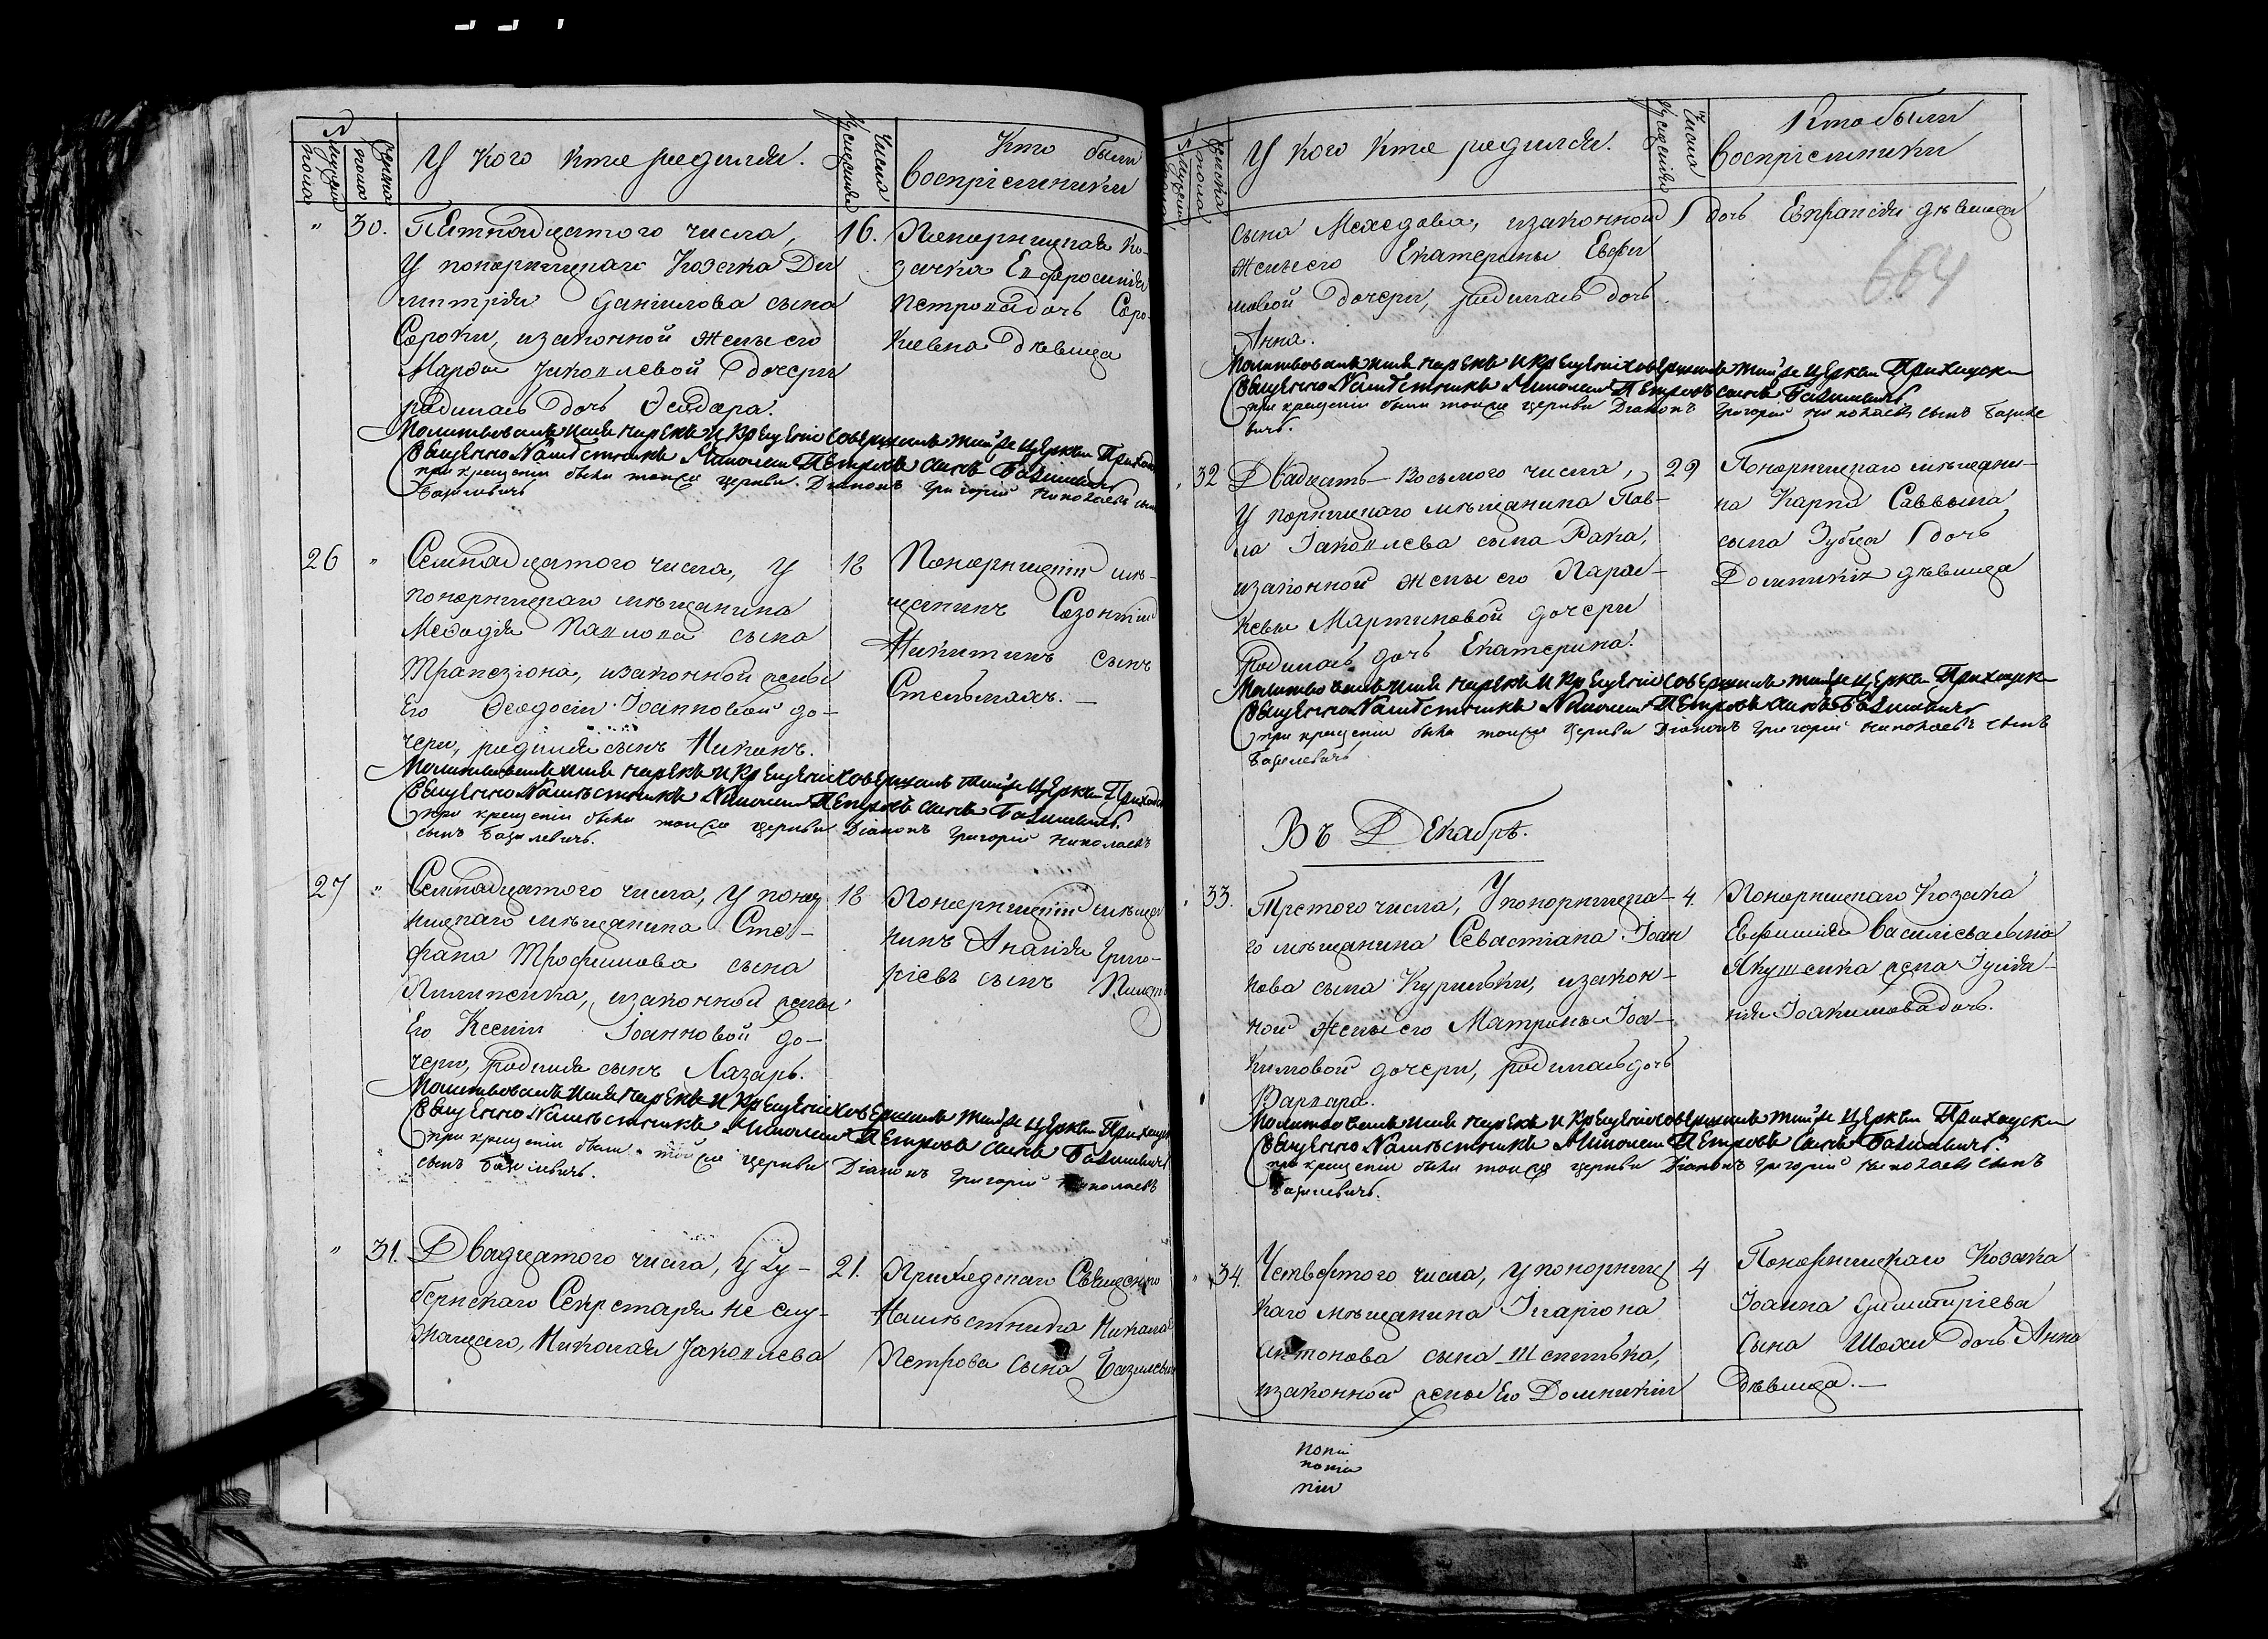 № Мужеска пола
Женска пола
У кого кто родился.
Числа крещенія
Кто были
воспріемники
" 30. Пятнадцатого числа, 16.
У понорницкаго Козака Ди
митрія Даніилова сына
Сороки, изаконной жены его
Марѳы Іаковлевой дочери
родилась дочь Ѳеодора.
Понорницкая ко-
зачка Евфросинія
Петрова дочь Соро-
киевна дѣвица
Молитвовалъ имя нарекъ и крещеніе совершилъ тойже церкви Приходскій
Священно Намѣстникъ Николай Петровъ сынъ Базилевичъ
при крещеніи были тойже церкви Діаконъ Григорій Николаевъ сынъ
Базилевичъ
26 " Семнадцатого числа, у 18
понорницкаго мѣщанина
Меѳодія Павлова сына
Трапезіона, изаконной жены
Его Ѳеодосіи Іоанновой до-
чери, родился сынъ Никонъ.
Понорницкій мѣ-
щанинъ Созонтій
Никитинъ сынъ
Стельмахъ. —
Молитвовалъ имя нарекъ и крещеніе совершилъ тойже церкви Приходскій
Священно Намѣстникъ Николай Петровъ сынъ Базилевичъ.
при крещеніи были тойже церкви Діаконъ Григорій Николаевъ
сынъ Базилевичъ.
27 " Семнадцатого числа, у понор 18
ницкаго мѣщанина Сте-
фана Трофимова сына
Пилипенка, изаконной жены
Его Ксеніи Іоанновой до-
чери, родился сынъ Лазарь.
Понорницкій мѣща
нинъ Ананія Григо-
ріевъ сынъ
Молитвовалъ имя нарекъ и крещеніе совершилъ тойже церкви Приходскій
Священно Намѣстникъ Николай Петровъ сынъ Базилевичъ
при крещеніи были тойже церкви Діаконъ Григорій Николаевъ
сынъ Базилевичъ.
" 31. Двадцатого числа, у Гу- 21.
бернскаго Секретаря не слу-
жащаго, Николая Іаковлева
Приходскаго Священно
Намѣстника Николая
Петрова сына Базилевича
У кого кто родился.
Числа крещенія
Кто были
воспріемники
сына Мехедова, изаконной
жены его Екатерины Евфи
мовой дочери, родилась дочь
Анна.
дочь Евпраксія дѣвица
664
Молитвовалъ имя нарекъ и крещеніе совершилъ тойже церкви Приходскій
Священно Намѣстникъ Николай Петровъ сынъ Базилевичъ
при крещеніи были тойже церкви Діаконъ Григорій Николаевъ сынъ Базиле
вичъ.
32 Двадцать Восьмого числа, 29
У порницкаго мѣщанина Пав-
ла Іаковлева сына Рака,
изаконной жены его Парас-
кевы Мартиновой дочери
родилась дочь Екатерина.
Понорницкаго мѣщани-
на Карпа Саввына
сына Зубца дочь
Домникія дѣвица
Молитвовалъ имя нарекъ и крещеніе совершилъ тойже церкви Приходск
Священно Намѣстникъ Николай Петровъ сынъ Базилевичъ
при крещеніи были тойже церкви Діаконъ Григорій Николаевъ сынъ
Базилевичъ
Въ Декабрѣ.
33. Третого числа, У понорницка- 4.
го мѣщанина Севастіана Іоан
нова сына Курильки, изакон-
ной жены его Матроны Іоа-
кимовой дочери, родилась дочь
Варвара.
Понорницкаго Козака
Евфимія Василіева сына
Якушенка жена Іуліа-
нія Іоакимова дочь.
Молитвовалъ имя нарекъ и крещеніе совершилъ тойже церкви Приходскій
Священно Намѣстникъ Николай Петровъ сынъ Базилевичъ.
при крещеніи были тойже церкви Діаконъ Григорій Николаевъ сынъ
Базилевичъ.
" 34. Четвертого числа, у понорниц 4
каго мѣщанина Іларіона
Антонова сына Шепитька,
изаконной жены Его Домникіи
Понорницкаго Козака
Іоанна Димитріева
сына Шохи дочь Анна
дѣвица. —